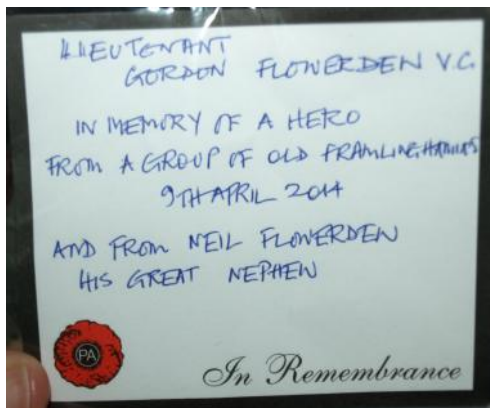 LIEUTENANT
GORDON FLOWERDEW V.C.
IN MEMORY OF A HERO
FROM A GROUP OF OLD FRAMLINGHAMIANS
9TH APRIL 2014
AND FROM NEIL FLOWERDEW
HIS GREAT NEPHEW
PA
In Remembrance